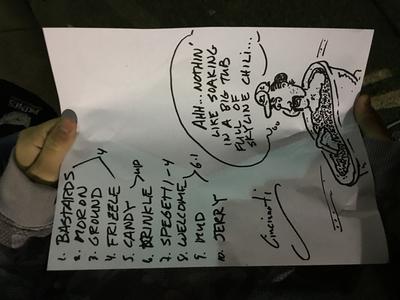 1. BASTARDS
2. MORON
3. GROUND
4
4. FRIZZLE
5. CANDY
UP
6.
7. SPEGETTI - 4
8. WELCOME
6:1
9. MUD
10. JERRY
AHH... NOTHIN'
LIKE SOAKING
IN A BIG TUB
FULL OF
SKYLINE CHILI...